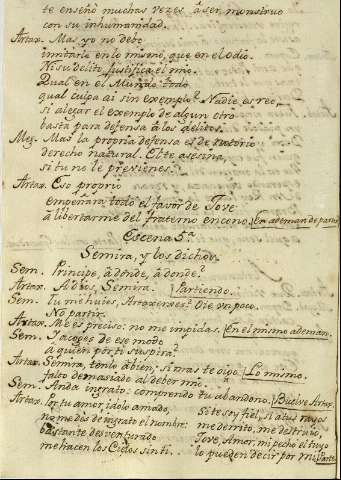 te enseñó muchas vezes à ser monstruo
con su inhumanidad.
Artax. Mas yo no debo
imitarle en lo mismo, que en el odio.
Ni su delito justifica el mio.
Qual en el Mundo todo
qual culpa ai sin exemplo? Nadie es reo,
si alegar el exemplo de algun otro
basta para defensa à los delitos.
Meg. Mas la propria defensa es de notorio
derecho natural. Él te asesina,
si tu no le previenes.
Artax. Eso proprio
empeñará todo el favor de Jove
à libertarme del fraterno encono. En ademan de partir
Escena 5.ª
Semira, y los dichos.
Sem. Principe, à dónde, à donde?
Artax. A Dios, Semira. Partiendo.
Sem. Tu me huies, Artaxerxes? Oie un poco.
No partir.
Artax. Me es preciso: no me impidas. En el mismo ademan.
Sem. I acoges de ese modo
à quien por ti suspira?
Artax. Semira, tenlo à bien; si mas te oigo, Lo mismo.
falto demasiado al deber mio.
Sem. Anda ingrato: comprendo tu abandono. Buelve Artax.
Artax. Por tu amor, idolo amado,
no me dès de ingrato el nombre:
bastante desventurado
me hacen los Cielos sin ti.
Si te soy fiel, si a tus rayos
me derrito, me destruio,
Jove, Amor, mi pecho, el tuyo
lo pueden decir por mi. Parte